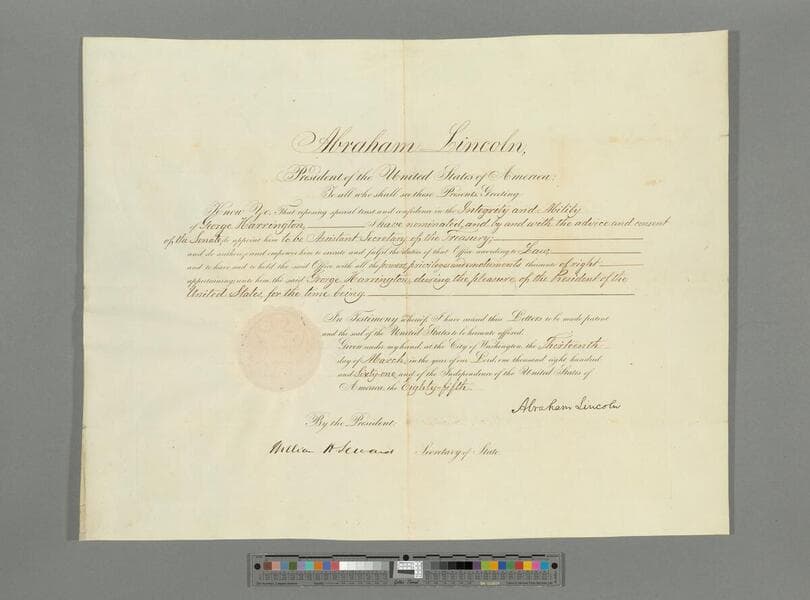 Abraham Lincoln,
President of the United States of America.
To all who shall see these Presents, Greeting:
Know Ye, That reposing special trust and confidence in the Integrity and Ability
of George Harrington, I have nominated, and by and with the advice and consent
of the Senate, do appoint him to be Assistant Secretary of the Treasury;
and do authorize and empower him to execute and fulfil the duties of that Office according to Law;
and to have and to hold the said Office with all the powers, privileges and emoluments thereunto of right
appertaining unto him the said George Harrington, during the pleasure of the President of the
United States, for the time being.
In Testimony whereof, I have caused these Letters to be made patent
and the seal of the United States to be hereunto affixed.
Given under my hand, at the City of Washington, the Thirteenth
day of March, in the year of our Lord, one thousand eight hundred
and Sixty-one and of the Independence of the United States of
America, the Eighty-fifth.
Abraham Lincoln
By the President:
William H Seward Secretary of State.